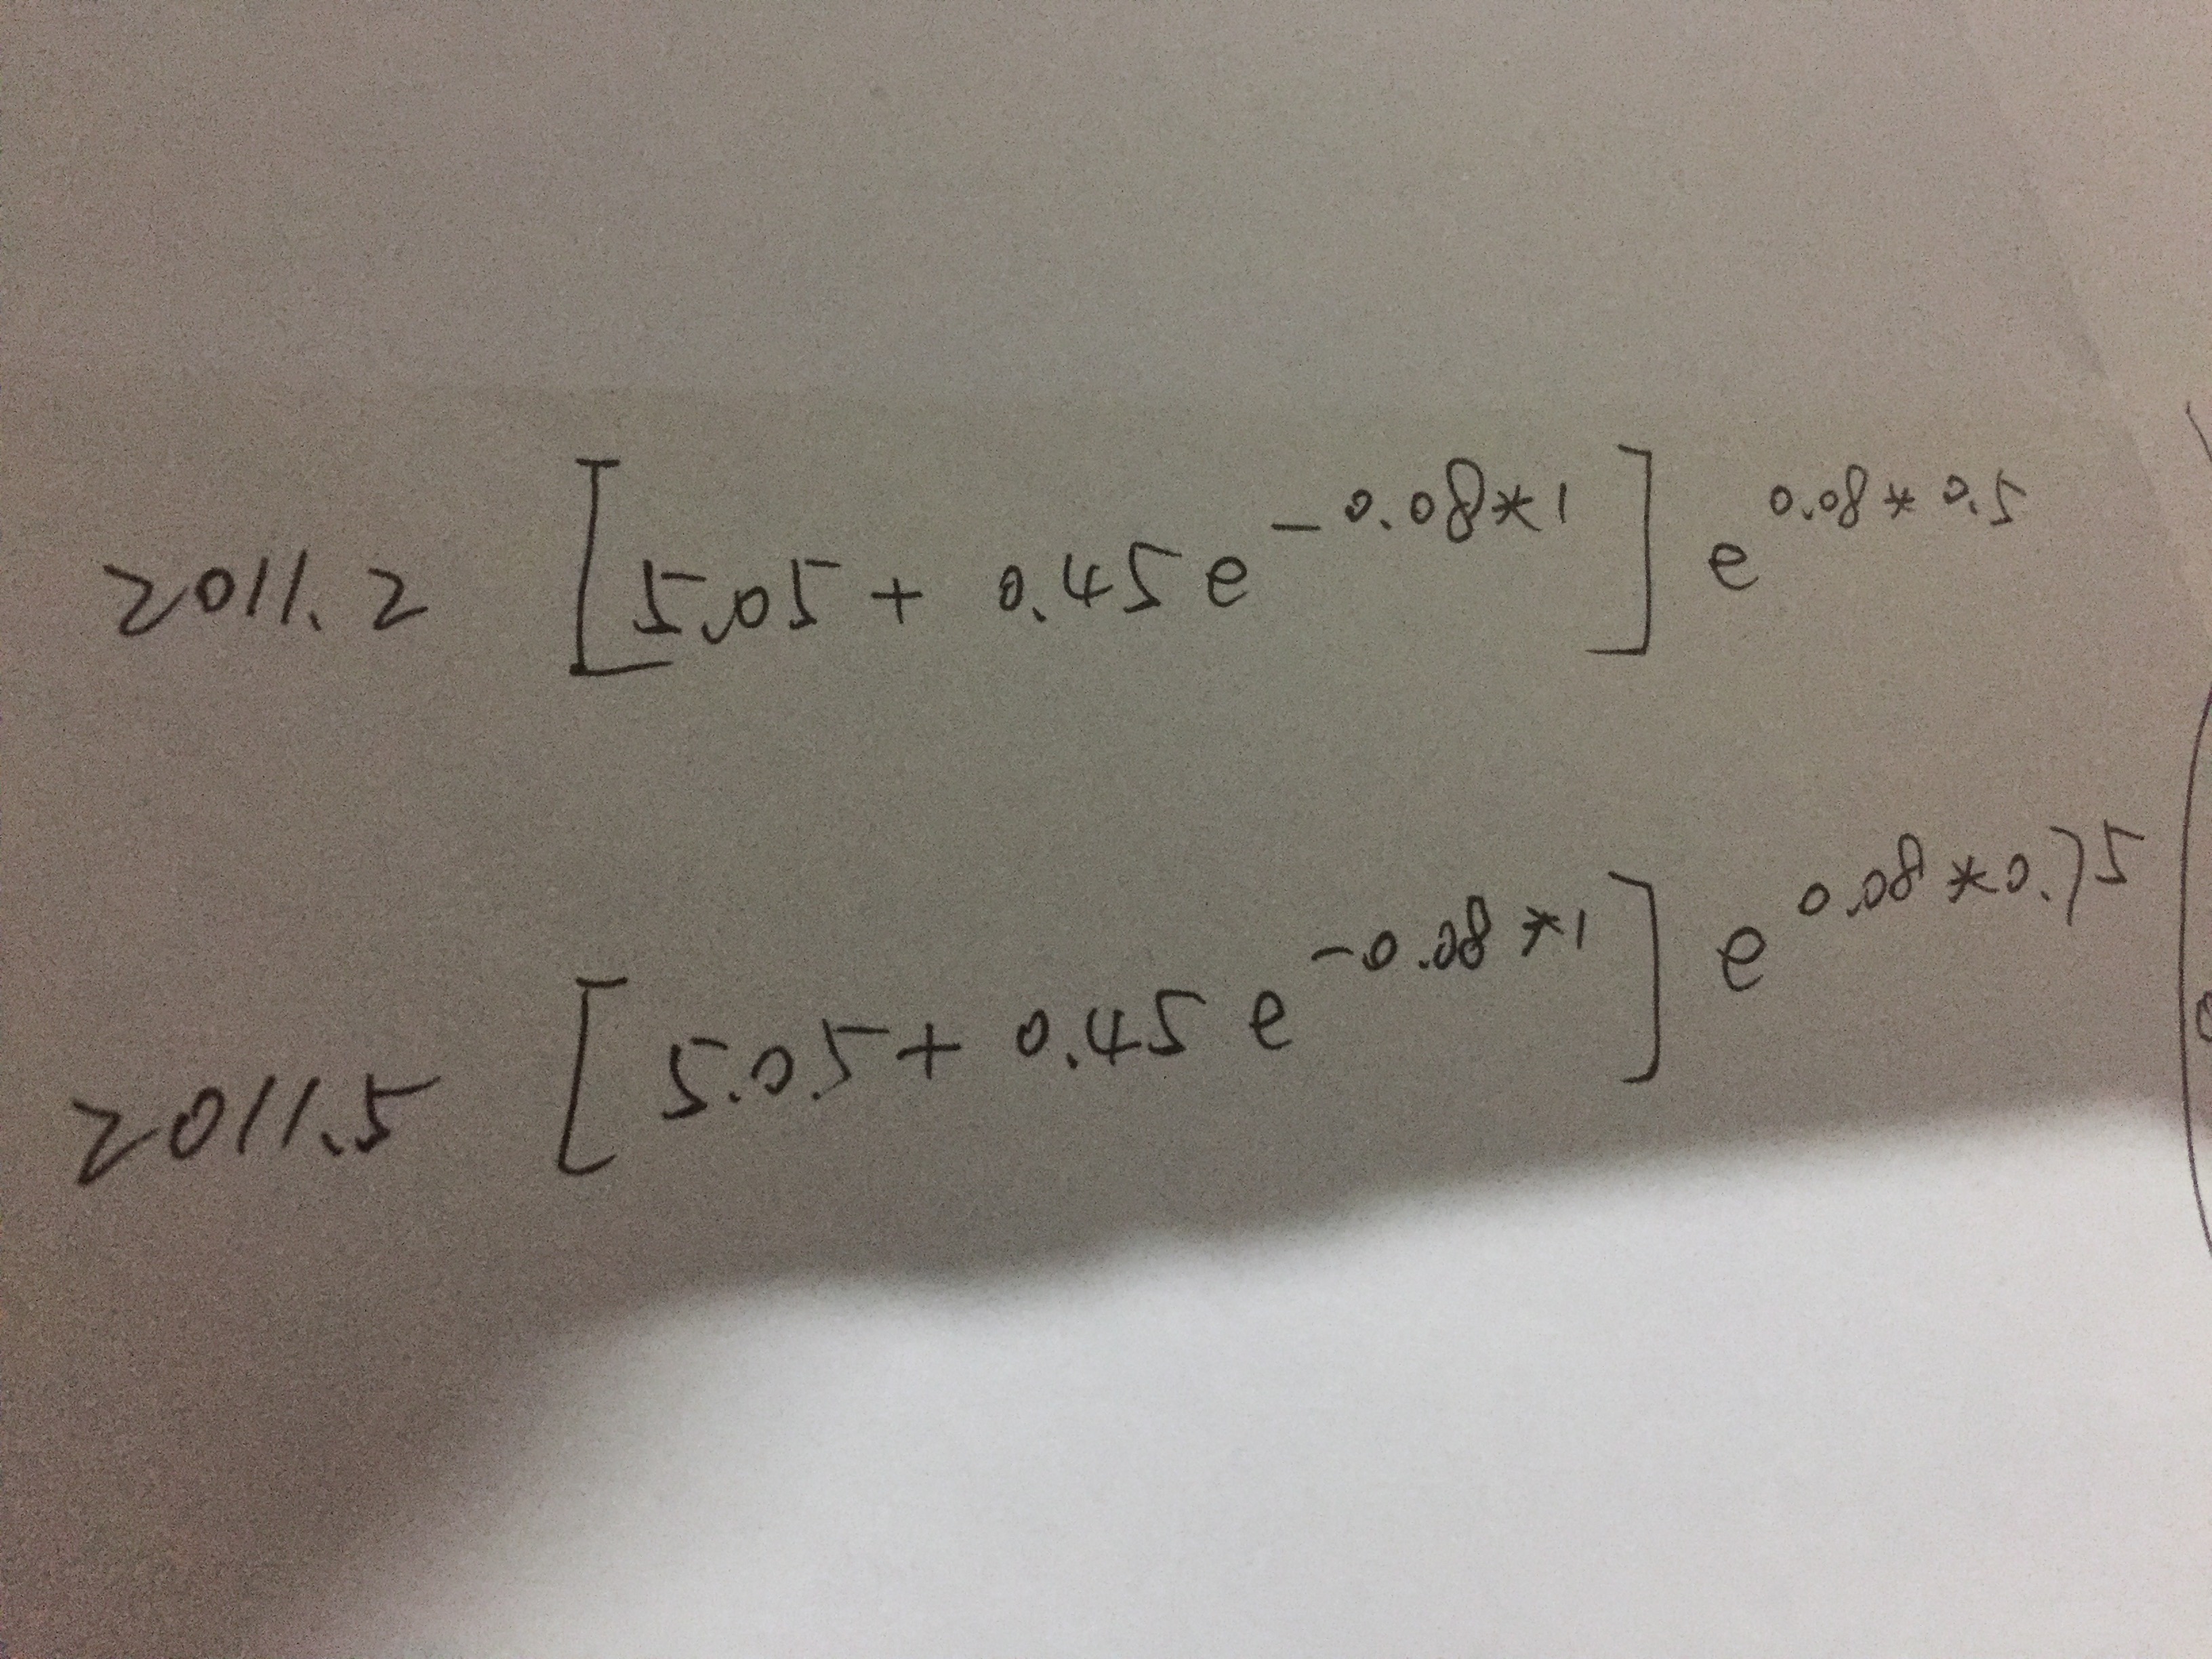 2011.2 [5.05 + 0.45 e^{-0.08*1}] e^{0.08*0.5}
2011.5 [5.05 + 0.45 e^{-0.08*1}] e^{0.08*0.75}